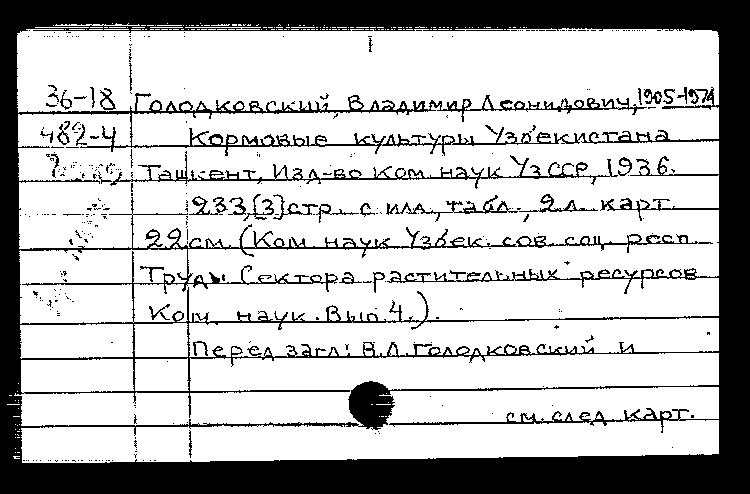 36-18 Голодковский, Владимир Леонидович, 1905-1974
482-4 Кормовые культуры Узбекистана
Ташкент, Изд-во Ком. наук УзССР, 1936.
233,[3]стр. с илл., табл., 2 л. карт.
22 см. (Ком. наук Узбек. сов. соц. респ.
Труды Сектора растительных ресурсов
Ком. наук. Вып. 4.).
Перед загл: В.Л.Голодковский и
см. след. карт.